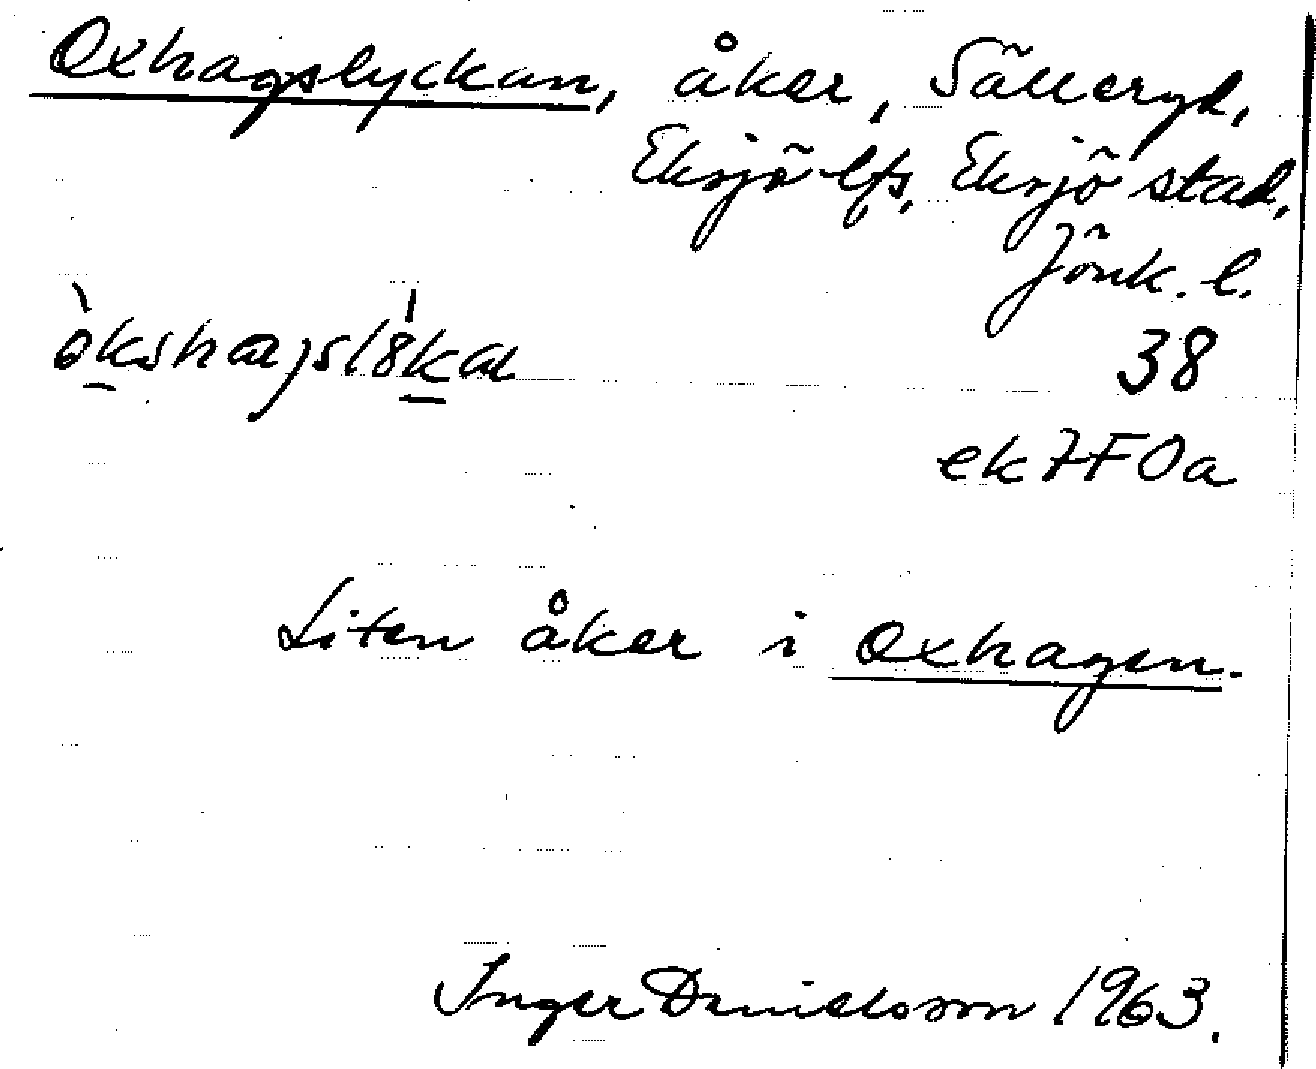 Oxhagslyckan, åker, Sälleryd,
Eksjö lfs, Eksjö stad,
Jönk. l.
38
ek7F0a
Liten åker i Oxhagen.
Inger Danielsson 1963.